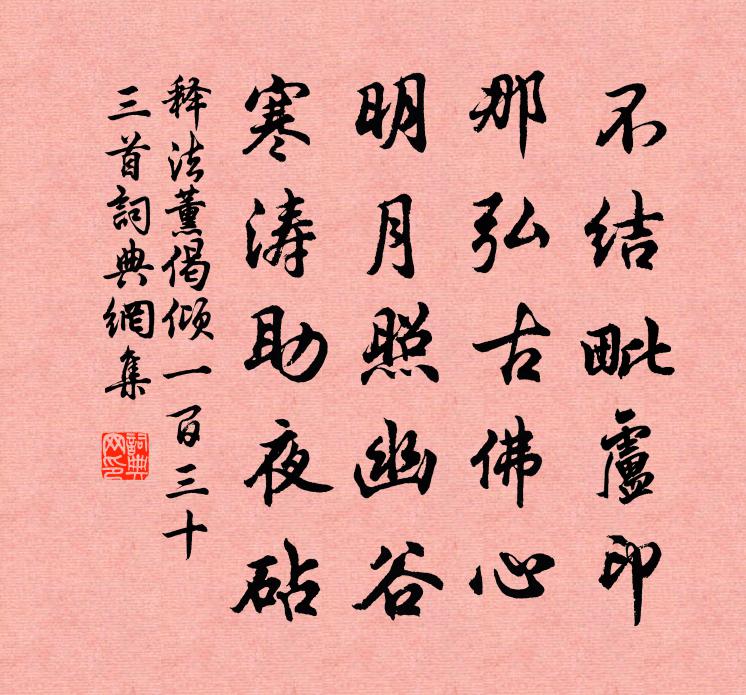 不结毗盧印
那弘古佛心
明月照幽谷
寒涛助夜砧
释法薰偈倾一百三十
三首詞典網集
詞典网印